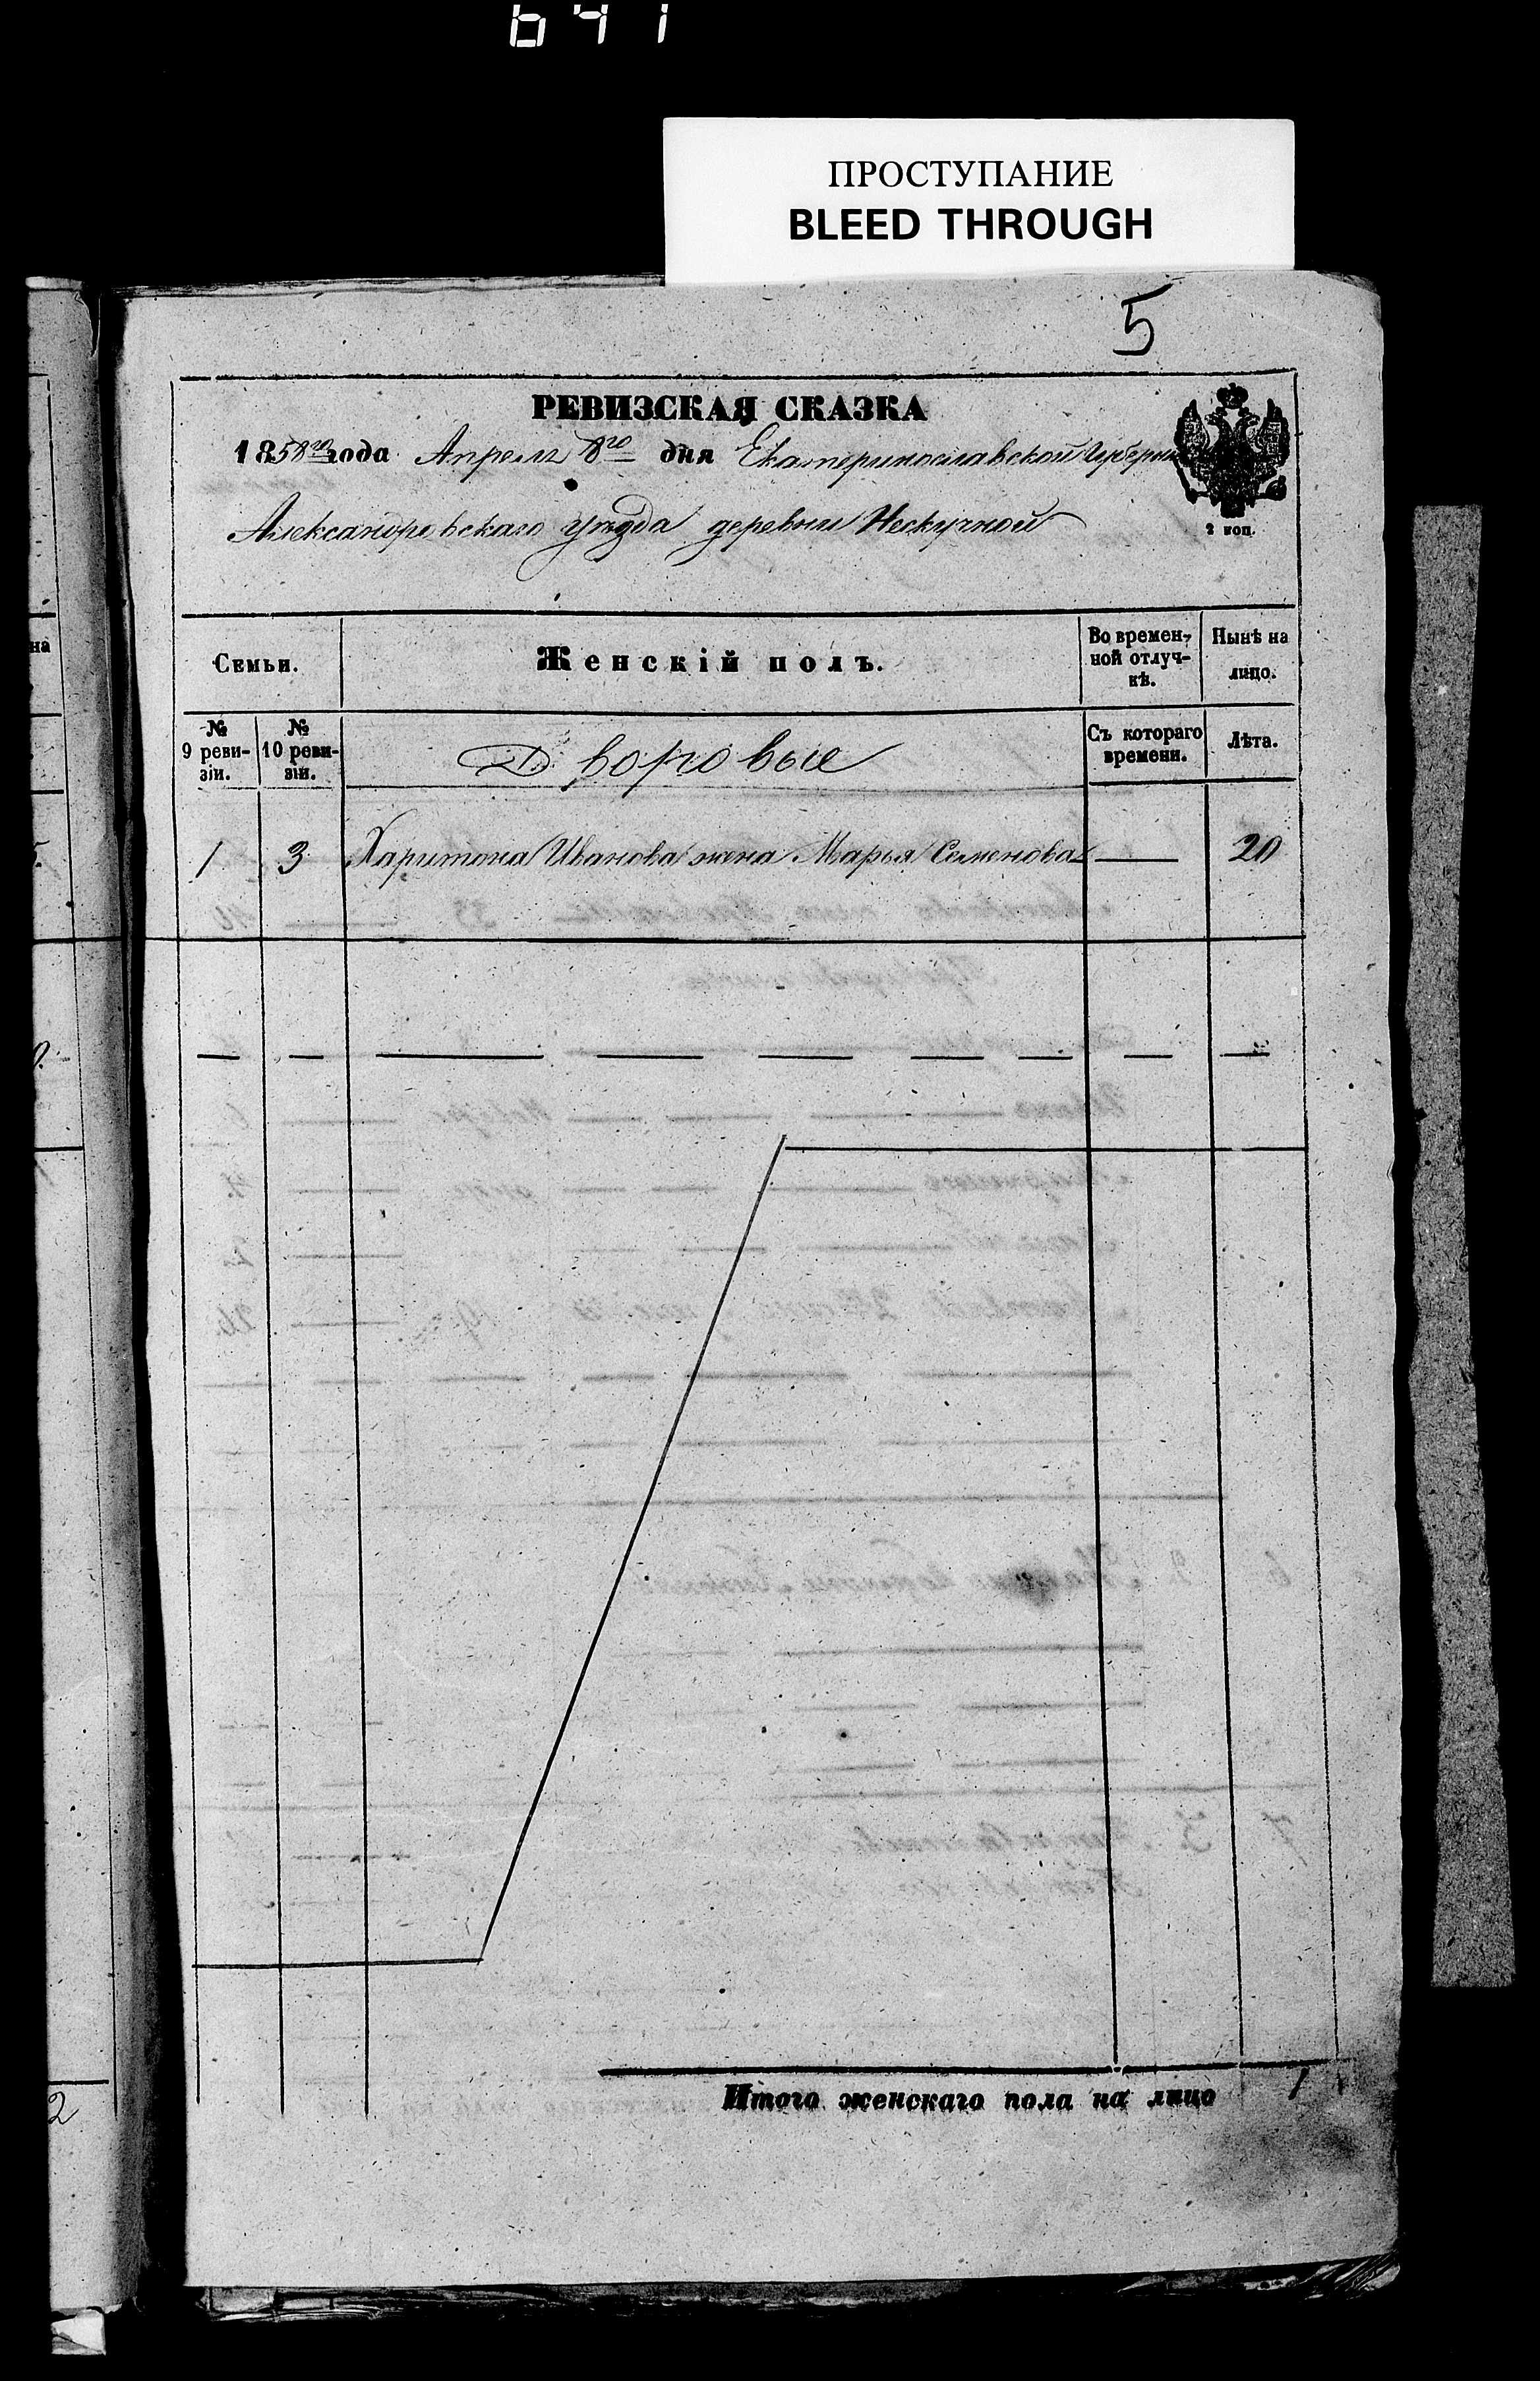 641
ПРОСТУПАНИЕ
BLEED THROUGH
5
РЕВИЗСКАЯ СКАЗКА
1858го года Апреля 8го дня Екатеринославской Губерніи
Александровскаго уѣзда деревни Нескучной
2 коп.
Семьи.
Женскій полъ.
Во времен-
ной отлуч-
кѣ.
Нынѣ на
лицо.
№
9 реви-
зіи.
№
10 реви-
зіи.
Дворовые
Съ котораго
времени.
Лѣта.
1 3 Харитона Иванова жена Марья Семенова — 20
Итого женскаго пола на лицо 1
на
2